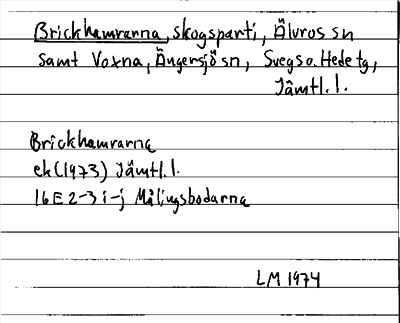 Brickhamrarna, skogsparti, Älvros sn
samt Voxna, Ängersjö sn, Svegs o. Hede tg,
Jämtl. l.
Brickhamrarna
ek (1973) Jämtl. l.
16E 2-3 i-j Målingsbodarna
LM 1974